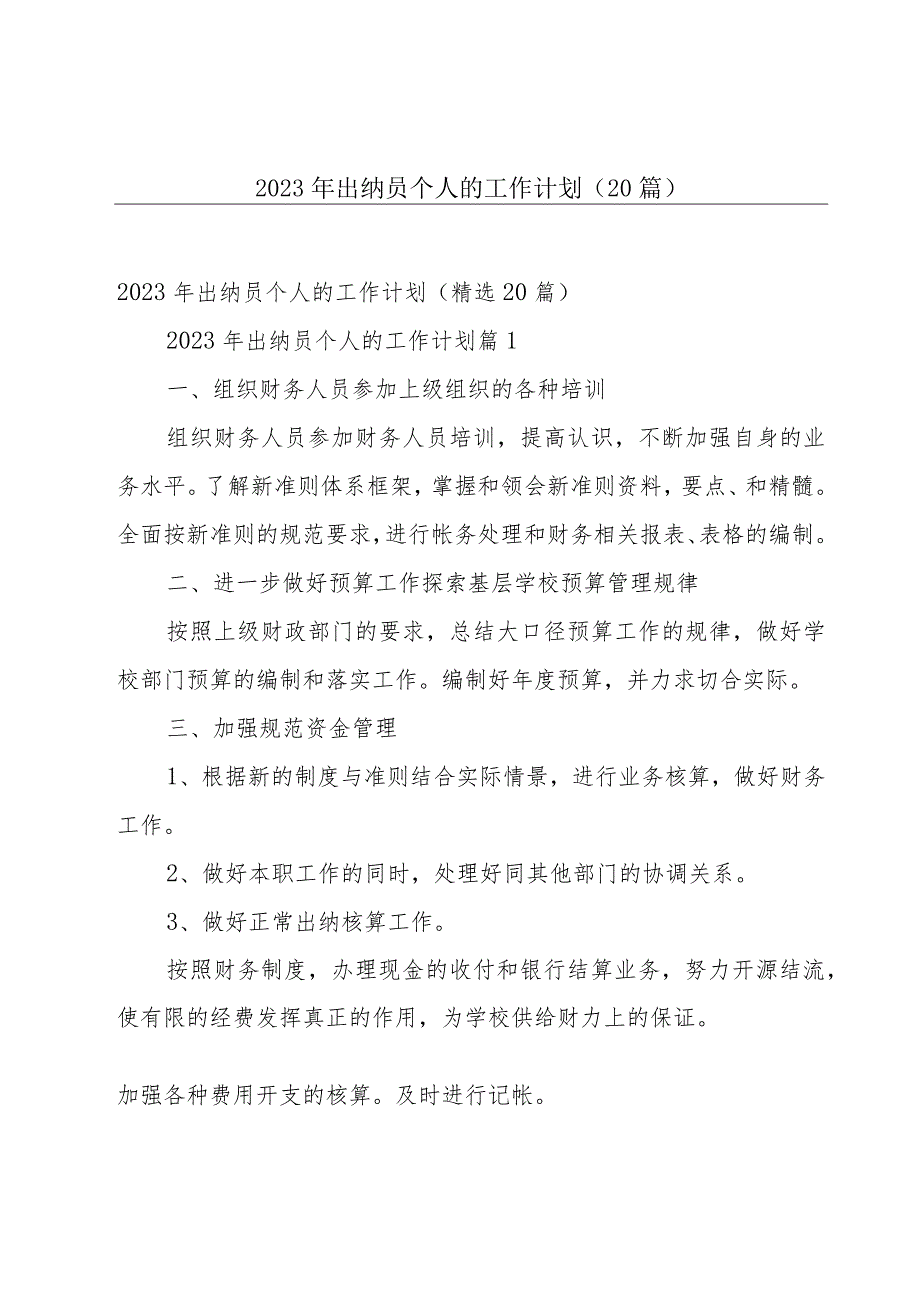 2023 年出纳员个人的工作计划（20 篇）
2023 年出纳员个人的工作计划（精选 20 篇）
2023 年出纳员个人的工作计划篇 1
一、组织财务人员参加上级组织的各种培训
组织财务人员参加财务人员培训，提高认识，不断加强自身的业
务水平。了解新准则体系框架，掌握和领会新准则资料，要点、和精髓。
全面按新准则的规范要求，进行帐务处理和财务相关报表、表格的编制。
二、进一步做好预算工作探索基层学校预算管理规律
按照上级财政部门的要求，总结大口径预算工作的规律，做好学
校部门预算的编制和落实工作。编制好年度预算，并力求切合实际。
三、加强规范资金管理
1、根据新的制度与准则结合实际情景，进行业务核算，做好财务
工作。
2、做好本职工作的同时，处理好同其他部门的协调关系。
3、做好正常出纳核算工作。
按照财务制度，办理现金的收付和银行结算业务，努力开源结流，
使有限的经费发挥真正的作用，为学校供给财力上的保证。
加强各种费用开支的核算。及时进行记帐。